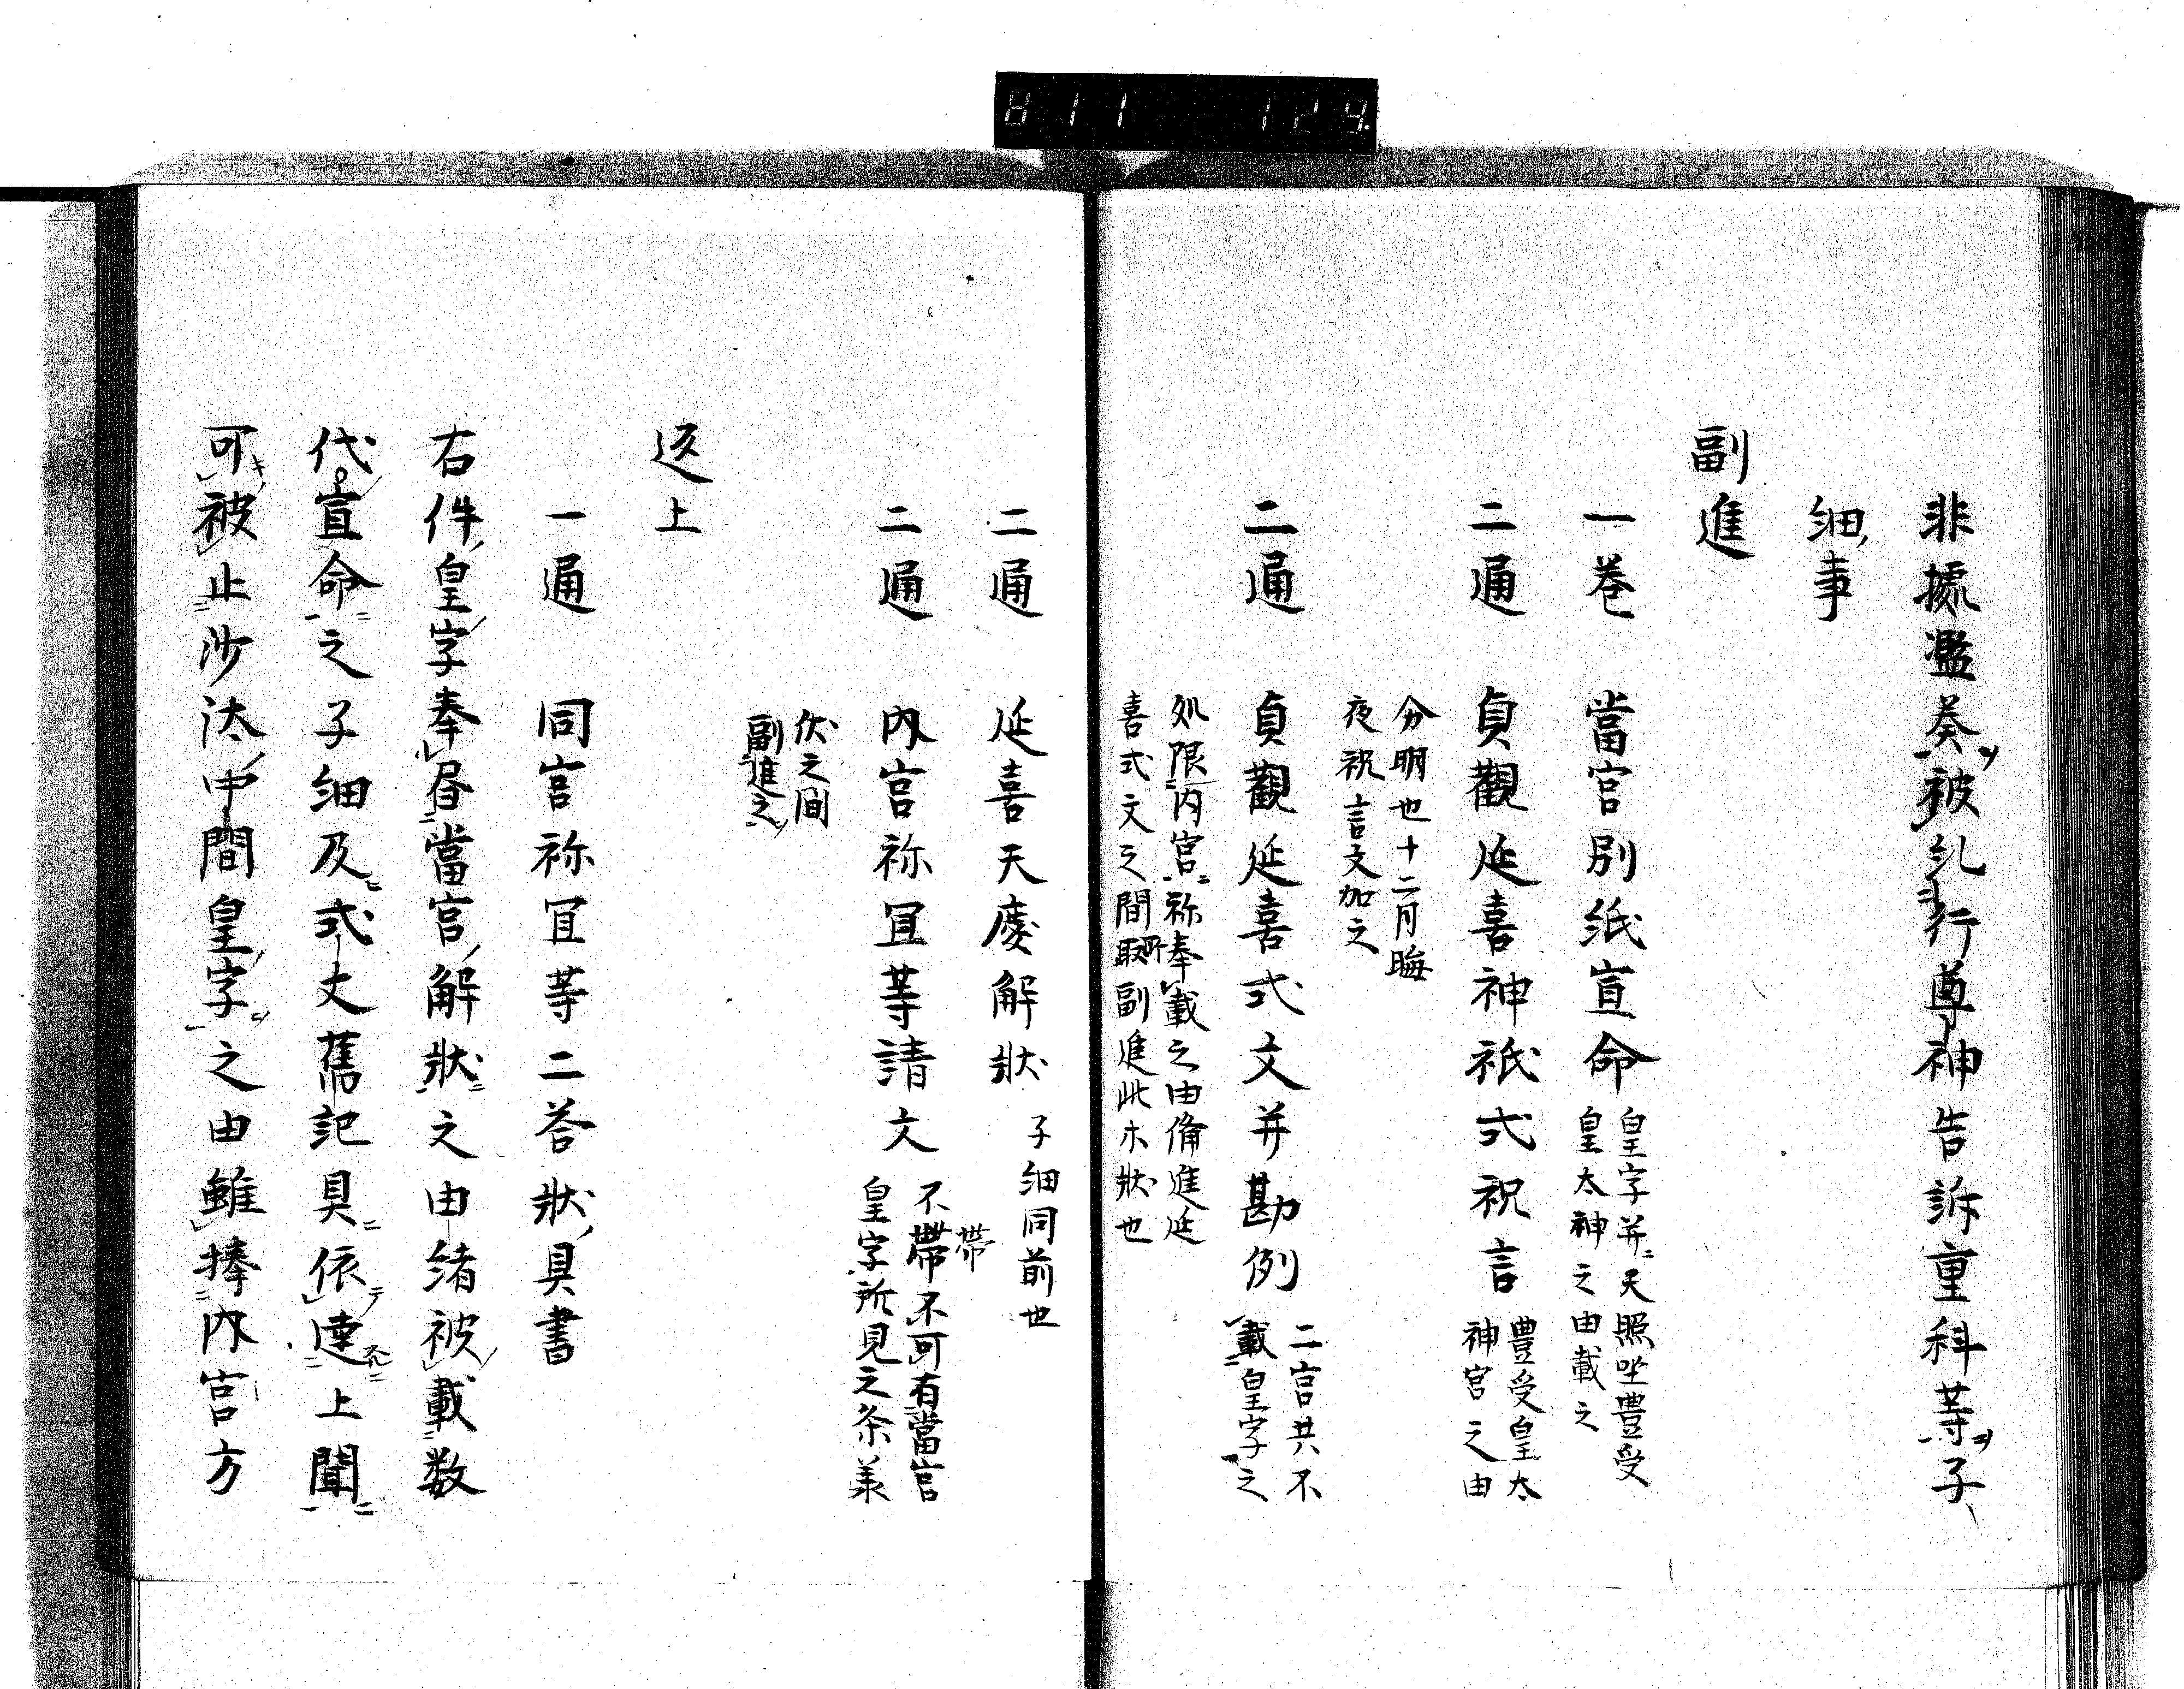 811 129
非據濫奏被糺行尊神告訴重科等子
細事
副進
一巻 當宮別紙宣命
皇字并天照坐豊受
皇太神之由載之
二通 貞觀延喜神祇式祝言
豊受皇太
神宮之由
分明也十二月晦
夜祝言文加之
二通 貞觀延喜式文并勘例
二宮共不
載皇字之
処限内宮称奉載之由備進延
喜式文之間取副進此木状也
二通 延喜天慶解状
子細同前也
二通 内宮祢宜等請文
不帶不可有當宮
帶
皇字所見之条業
伏之間
副進之
返上
一通 同宮祢宜等二答状具書
右件皇字奉昼當宮解状之由緒被載数
代宣命之子細及式文舊記具依達上聞
可被止沙汰中間皇字之由雖捧内宮方